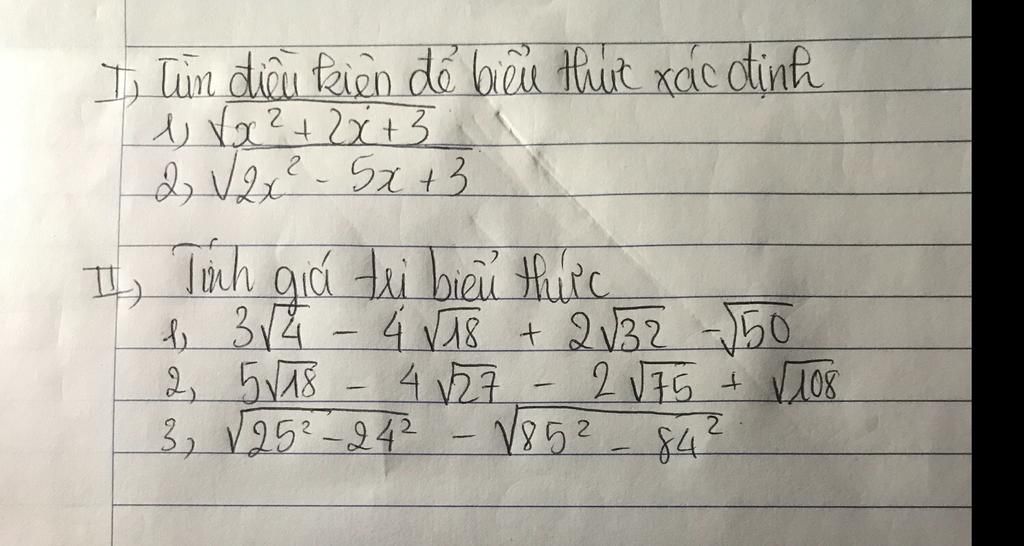 I, Tìm điều kiện để biểu thức xác định
1, √x² + 2x + 3
2, √2x² - 5x + 3
II, Tính giá trị biểu thức
1, 3√4 - 4√18 + 2√32 - √50
2, 5√18 - 4√27 - 2√75 + √108
3, √25² - 24² - √85² - 84²